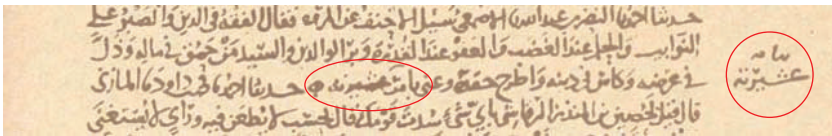 حدثنا احمد نا النضر بن عبد الله نا الاصمعي سئل الاحنف عن المروة فقال الفقه في الدين والصبر على
النوايب والحلم عند الغضب والعفو عند القدرة وبر الوالدين والسيد من حمق في ماله وذل
في عرضه وكاس في دينه واطرح حقده وعنى بامر عشيرته حدثنا احمد نا محمد بن داود نا المازني
عشيرته
قال قيل لحصين بن المنذر الرقاشي باي شي سدت قومك قال بحسب لا يطعن فيه وراي لا يستغنى